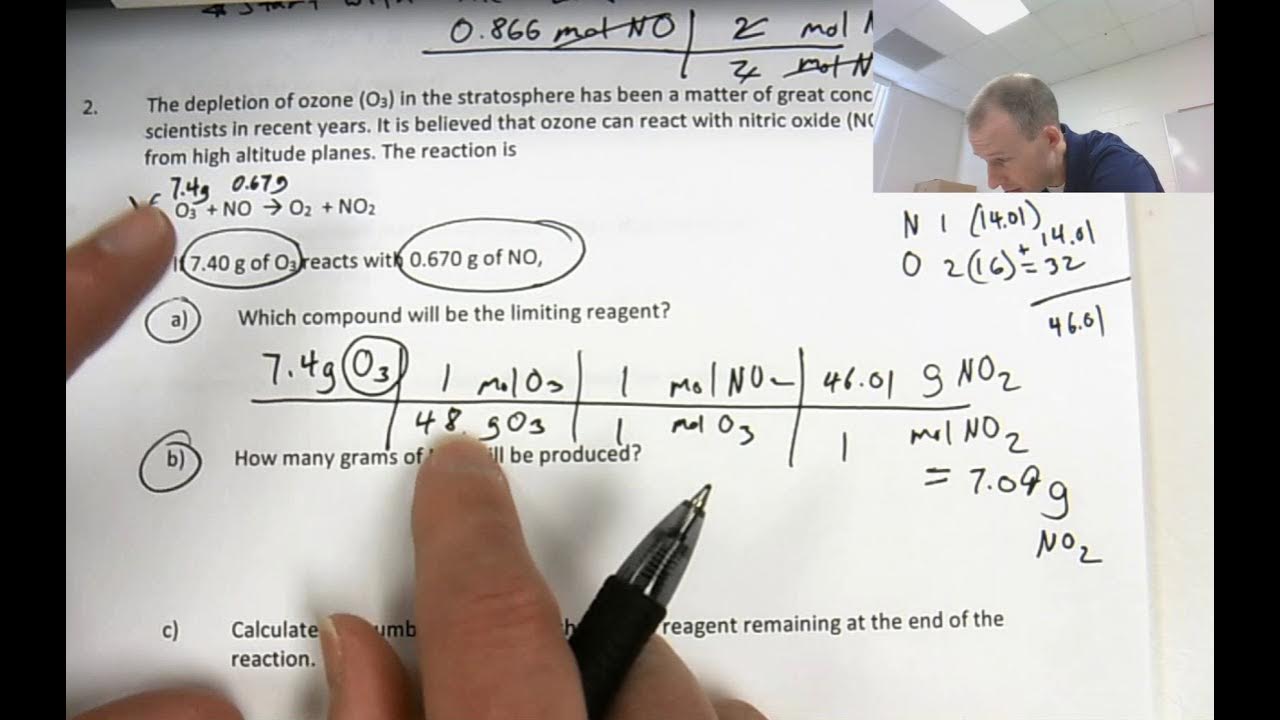 0.866 mol NO 2 mol
2 mol
2. The depletion of ozone (O₃) in the stratosphere has been a matter of great
scientists in recent years. It is believed that ozone can react with nitric oxide
from high altitude planes. The reaction is
7.4g 0.67g
O₃ + NO → O₂ + NO₂
7.40 g of O₃ reacts with 0.670 g of NO,
N 1 (14.01) 14.01
O 2(16) = + 32
46.01
a) Which compound will be the limiting reagent?
7.4g O₃ 1 mol O₃ 1 mol NO₂ 46.01 g NO₂
48. g O₃ 1 mol O₃ 1 mol NO₂
b) How many grams of will be produced?
= 7.09 g
NO₂
c) Calculate reagent remaining at the end of the
reaction.